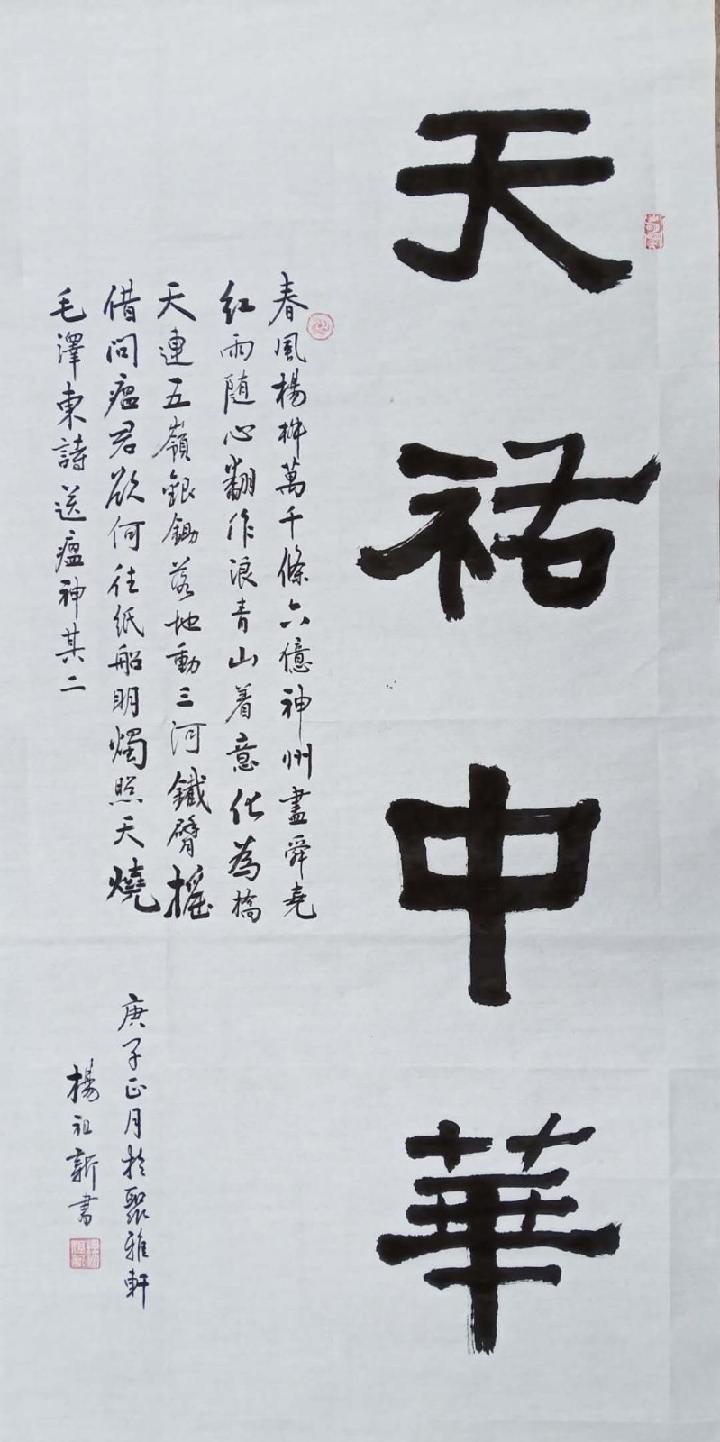 天祐中華
春風楊柳萬千條六億神州盡舜堯
紅雨随心翻作浪青山着意化為橋
天連五嶺銀鋤落地動三河鐵臂摇
借問瘟君欲何往纸船明燭照天燒
毛澤東詩送瘟神其二
庚子正月於聚雅軒
楊祖新書